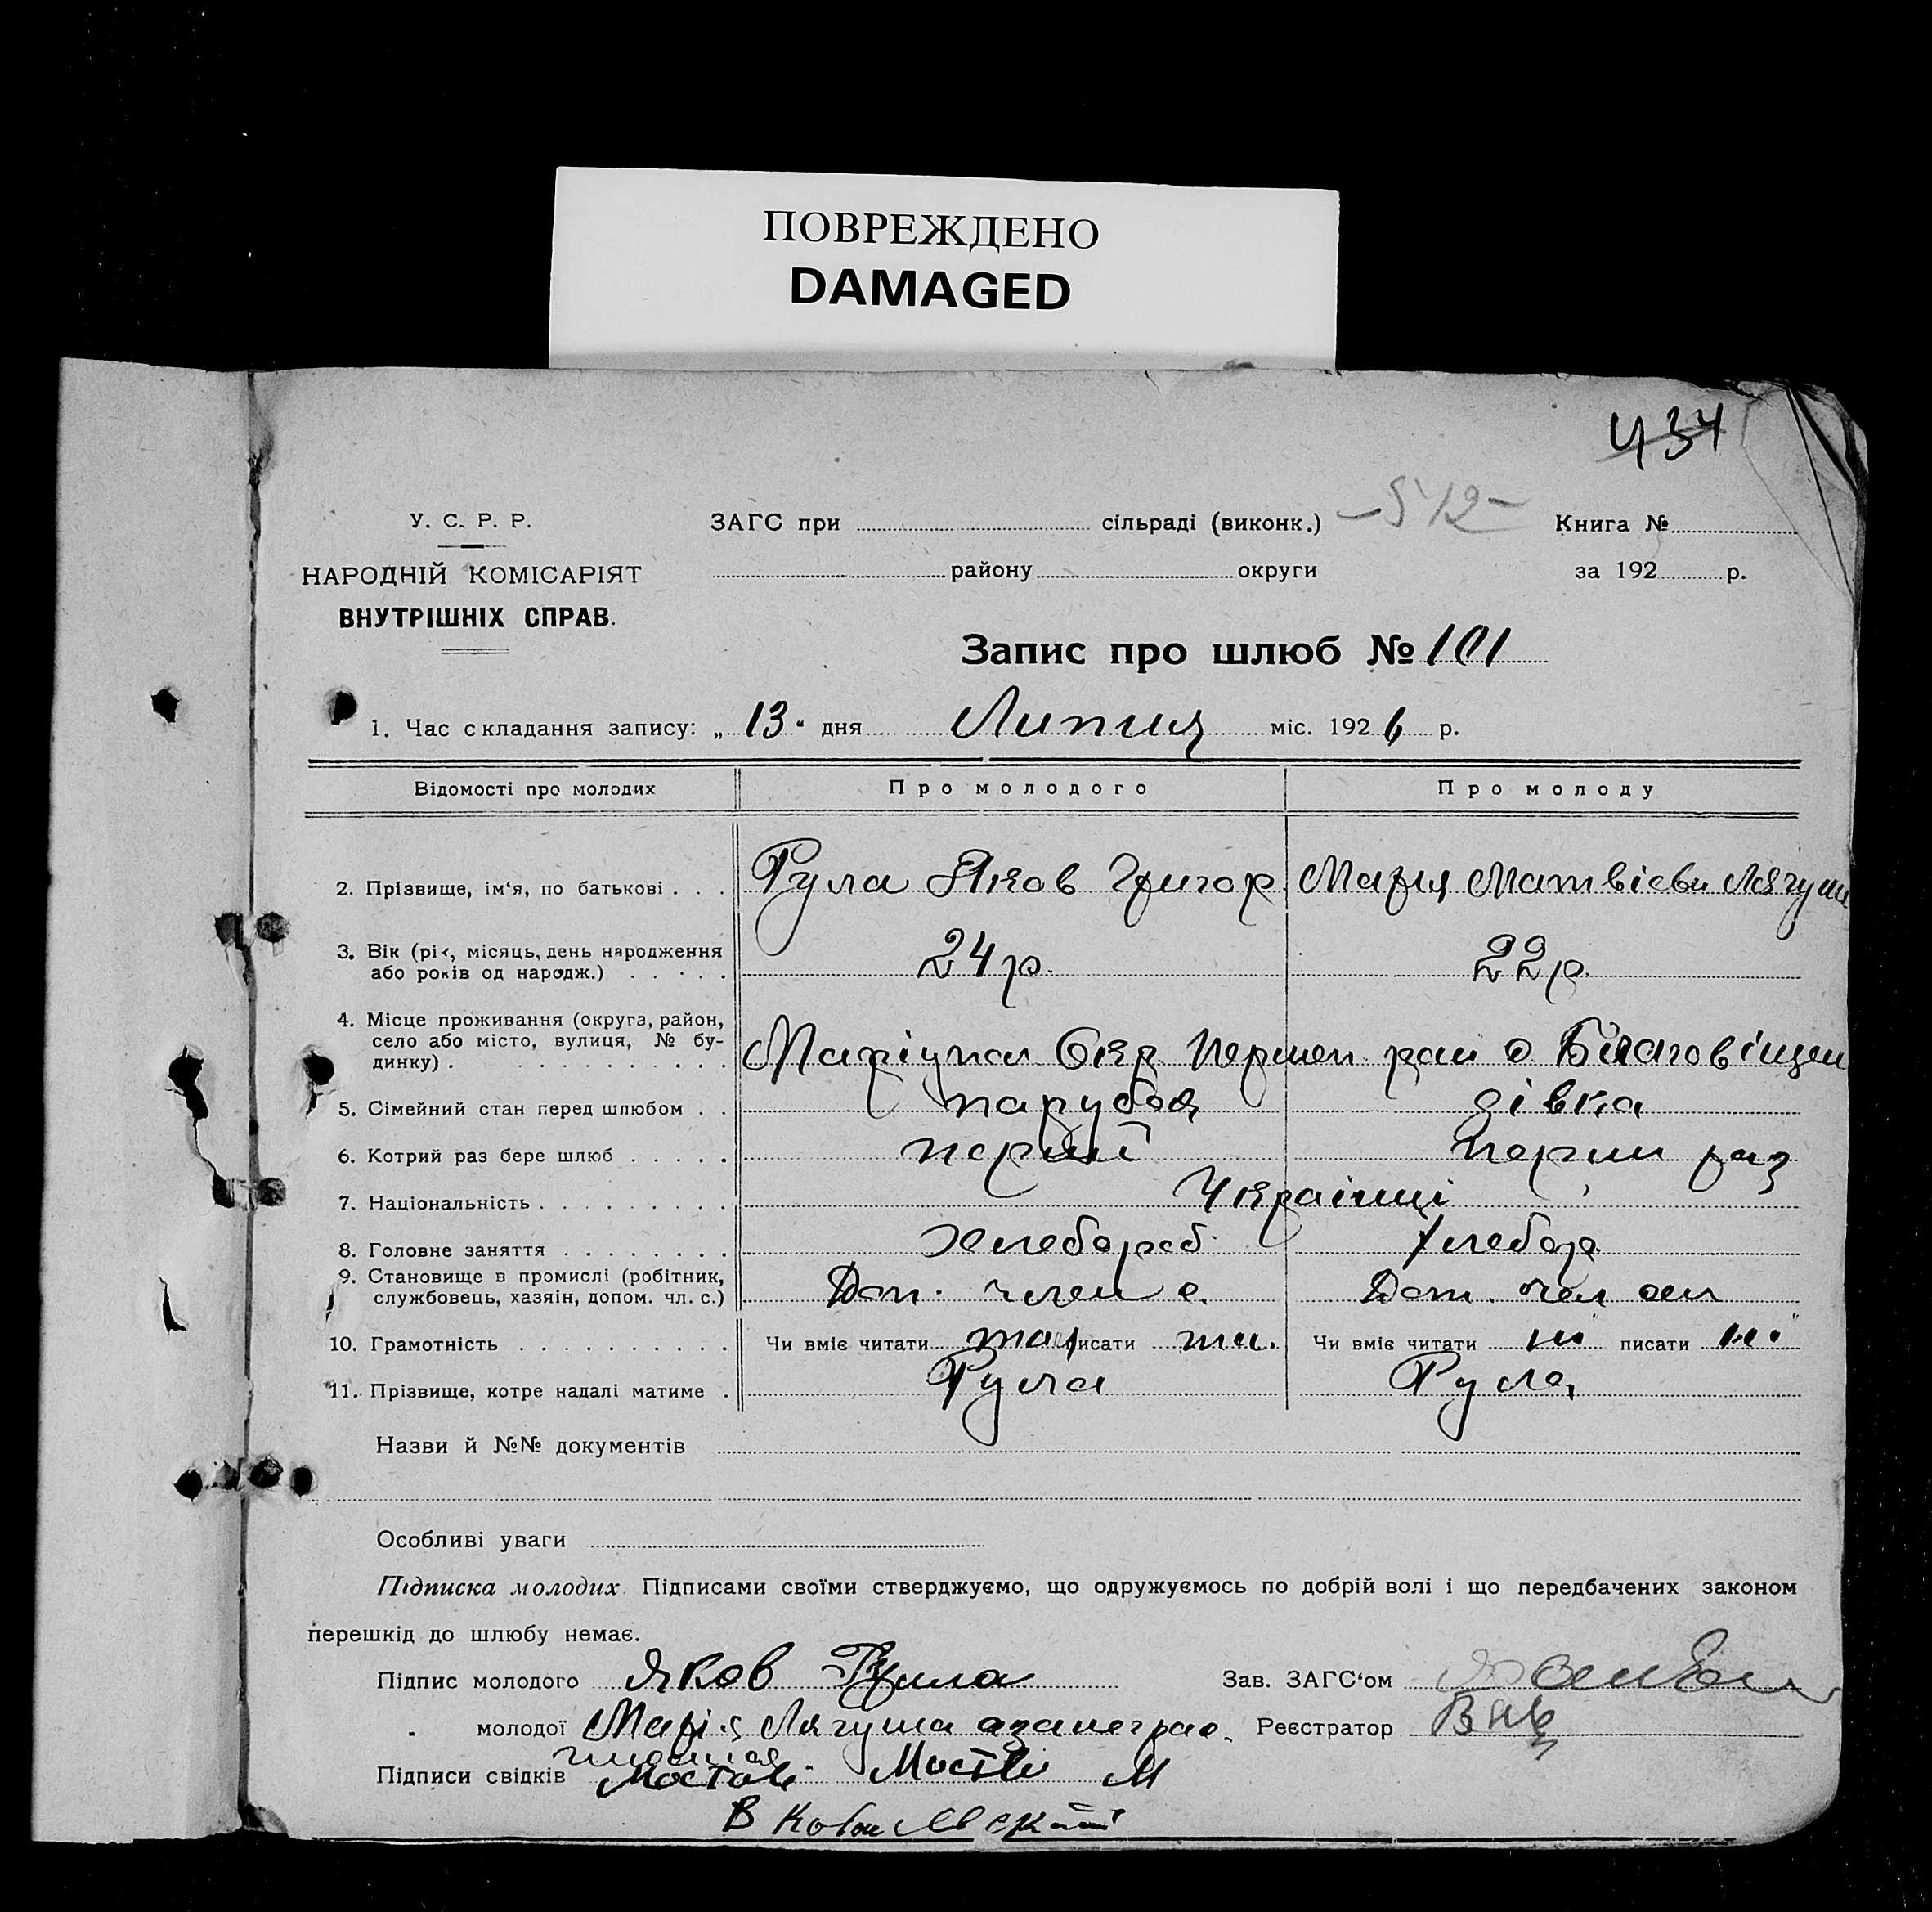 ПОВРЕЖДЕНО
DAMAGED
434
У. С. Р. Р.
НАРОДНІЙ КОМІСАРІЯТ
ВНУТРІШНІХ СПРАВ.
ЗАГС при сільраді (виконк.) -512- Книга №
району округи за 192 р.
Запис про шлюб № 101
1. Час складання запису: „13“ дня Липця міс. 1926 р.
Відомості про молодих Про молодого Про молоду
2. Прізвище, ім‘я, по батькові . . . Рула Яков Григор Мария Матвієвн Лягуш
3. Вік (рік, місяць, день народження
або років од народж.) . . . . . 24 р. 22 р.
4. Місце проживання (округа, район,
село або місто, вулиця, № бу-
динку) . . . . . . . . . . . Маріупол Окр Першоп рай с Благовіщен
5. Сімейний стан перед шлюбом . . парубок дівка
6. Котрий раз бере шлюб . . . . . перший перши раз
7. Національність . . . . . . . . . Українці
8. Головне заняття . . . . . . . . хлебороб. хлебор
9. Становище в промислі (робітник,
службовець, хазяін, допом. чл. с.) Доп. член с. Доп. чл
10. Грамотність . . . . . . . . . . Чи вміє читати так писати Чи вміє читати ні писати ні
11. Прізвище, котре надалі матиме . Рула Рула
Назви й №№ документів
Особливі уваги
Підписка молодих. Підписами своїми стверджуємо, що одружуємось по добрій волі і що передбачених законом
перешкід до шлюбу немає.
Підпис молодого Яков Рула Зав. ЗАГС‘ом
молодої Марія Лягуша Реєстратор
Підписи свідків М
В